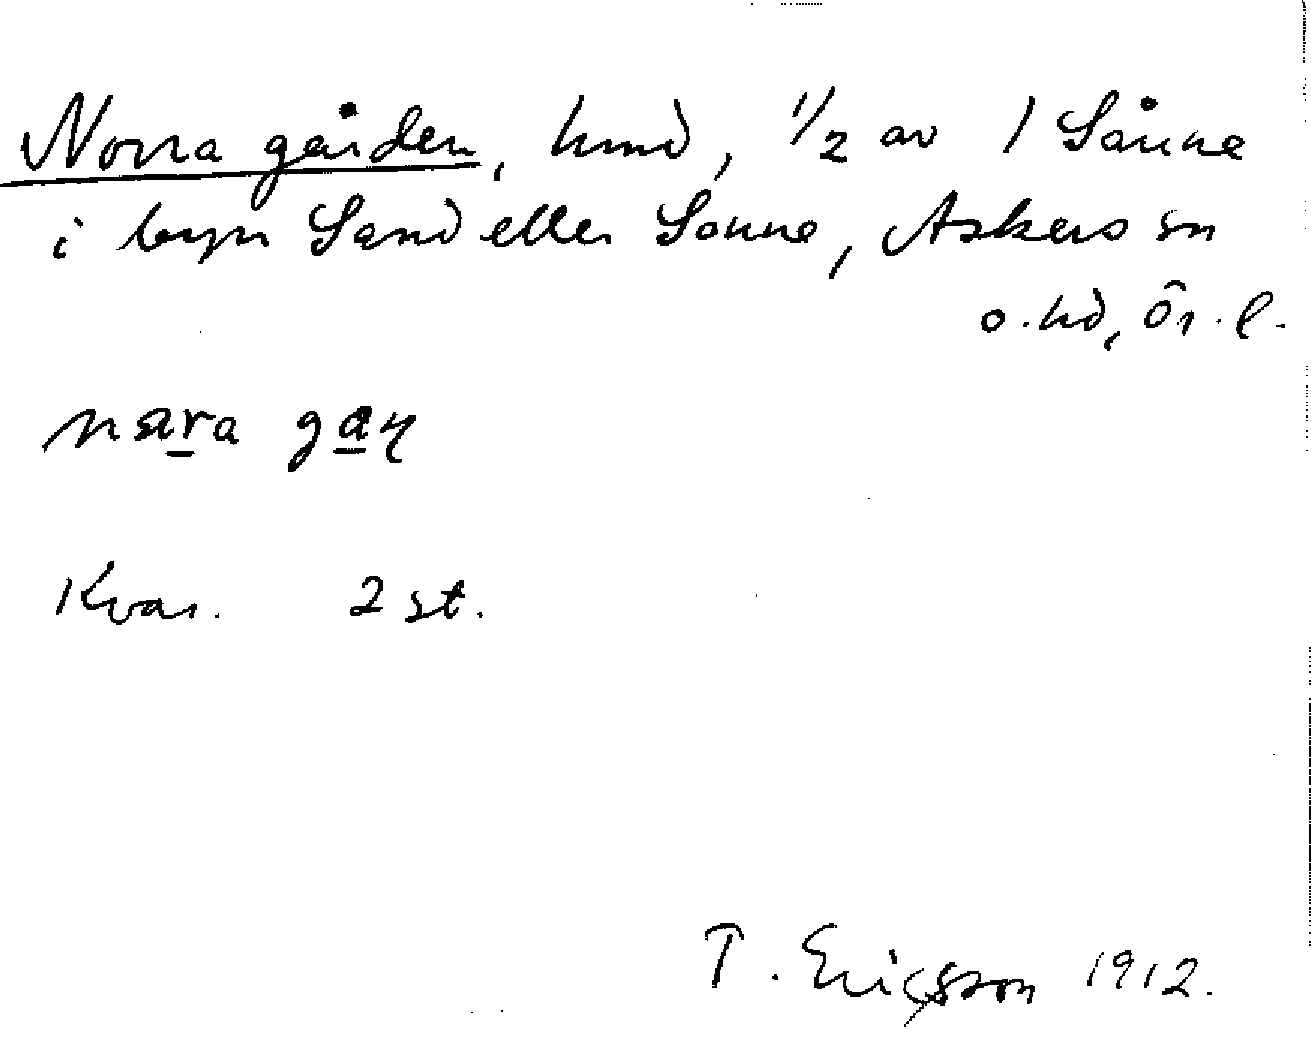 Norra gården, hmd, 1/2 av 1 Sånne
i byn Sand eller Sonne, Askers sn
o. hd, Ör. l.
nara gaɳ
Kvar. 2 st.
T. Ericsson 1912.